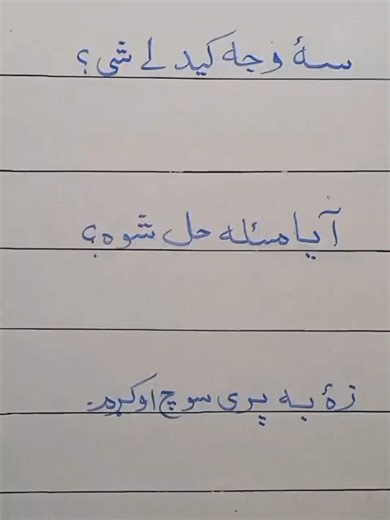 سۀ وجه کیدلے شی؟
آیا مسئله حل شوه؟
زۀ به پرې سوچ اوکړم.